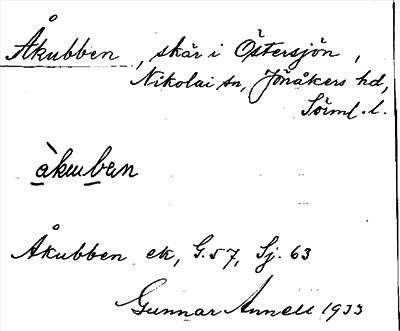 Åkubben, skär i Östersjön,
Nikolai sn, Jönåkers hd,
Sörml. l.
åkuban
Åkubben ek, G.57, Sj. 63
Gunnar Annell 1933